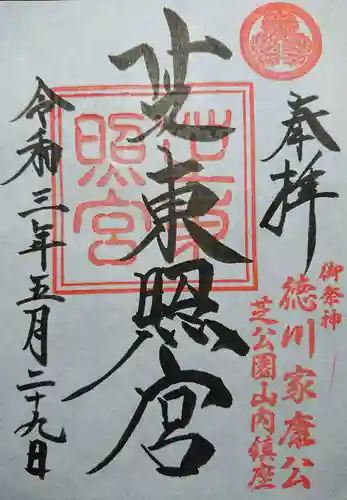 奉拝
御祭神
徳川家康公
芝公園山内鎮座
芝東照宮
芝東照宮
令和三年五月二十九日